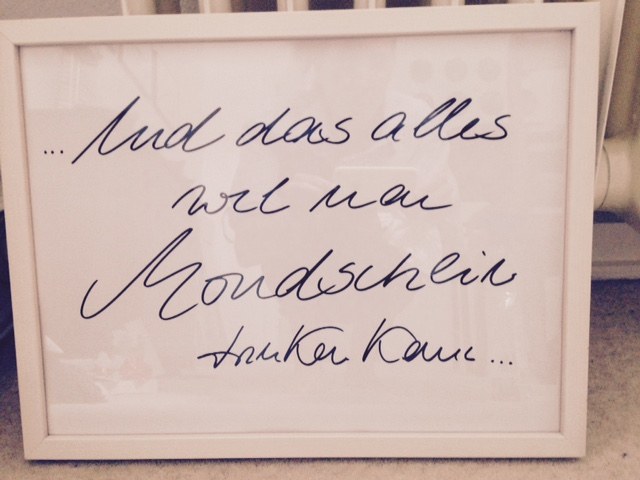 ... Und das alles
weil man
Mondschein
trinken kann...